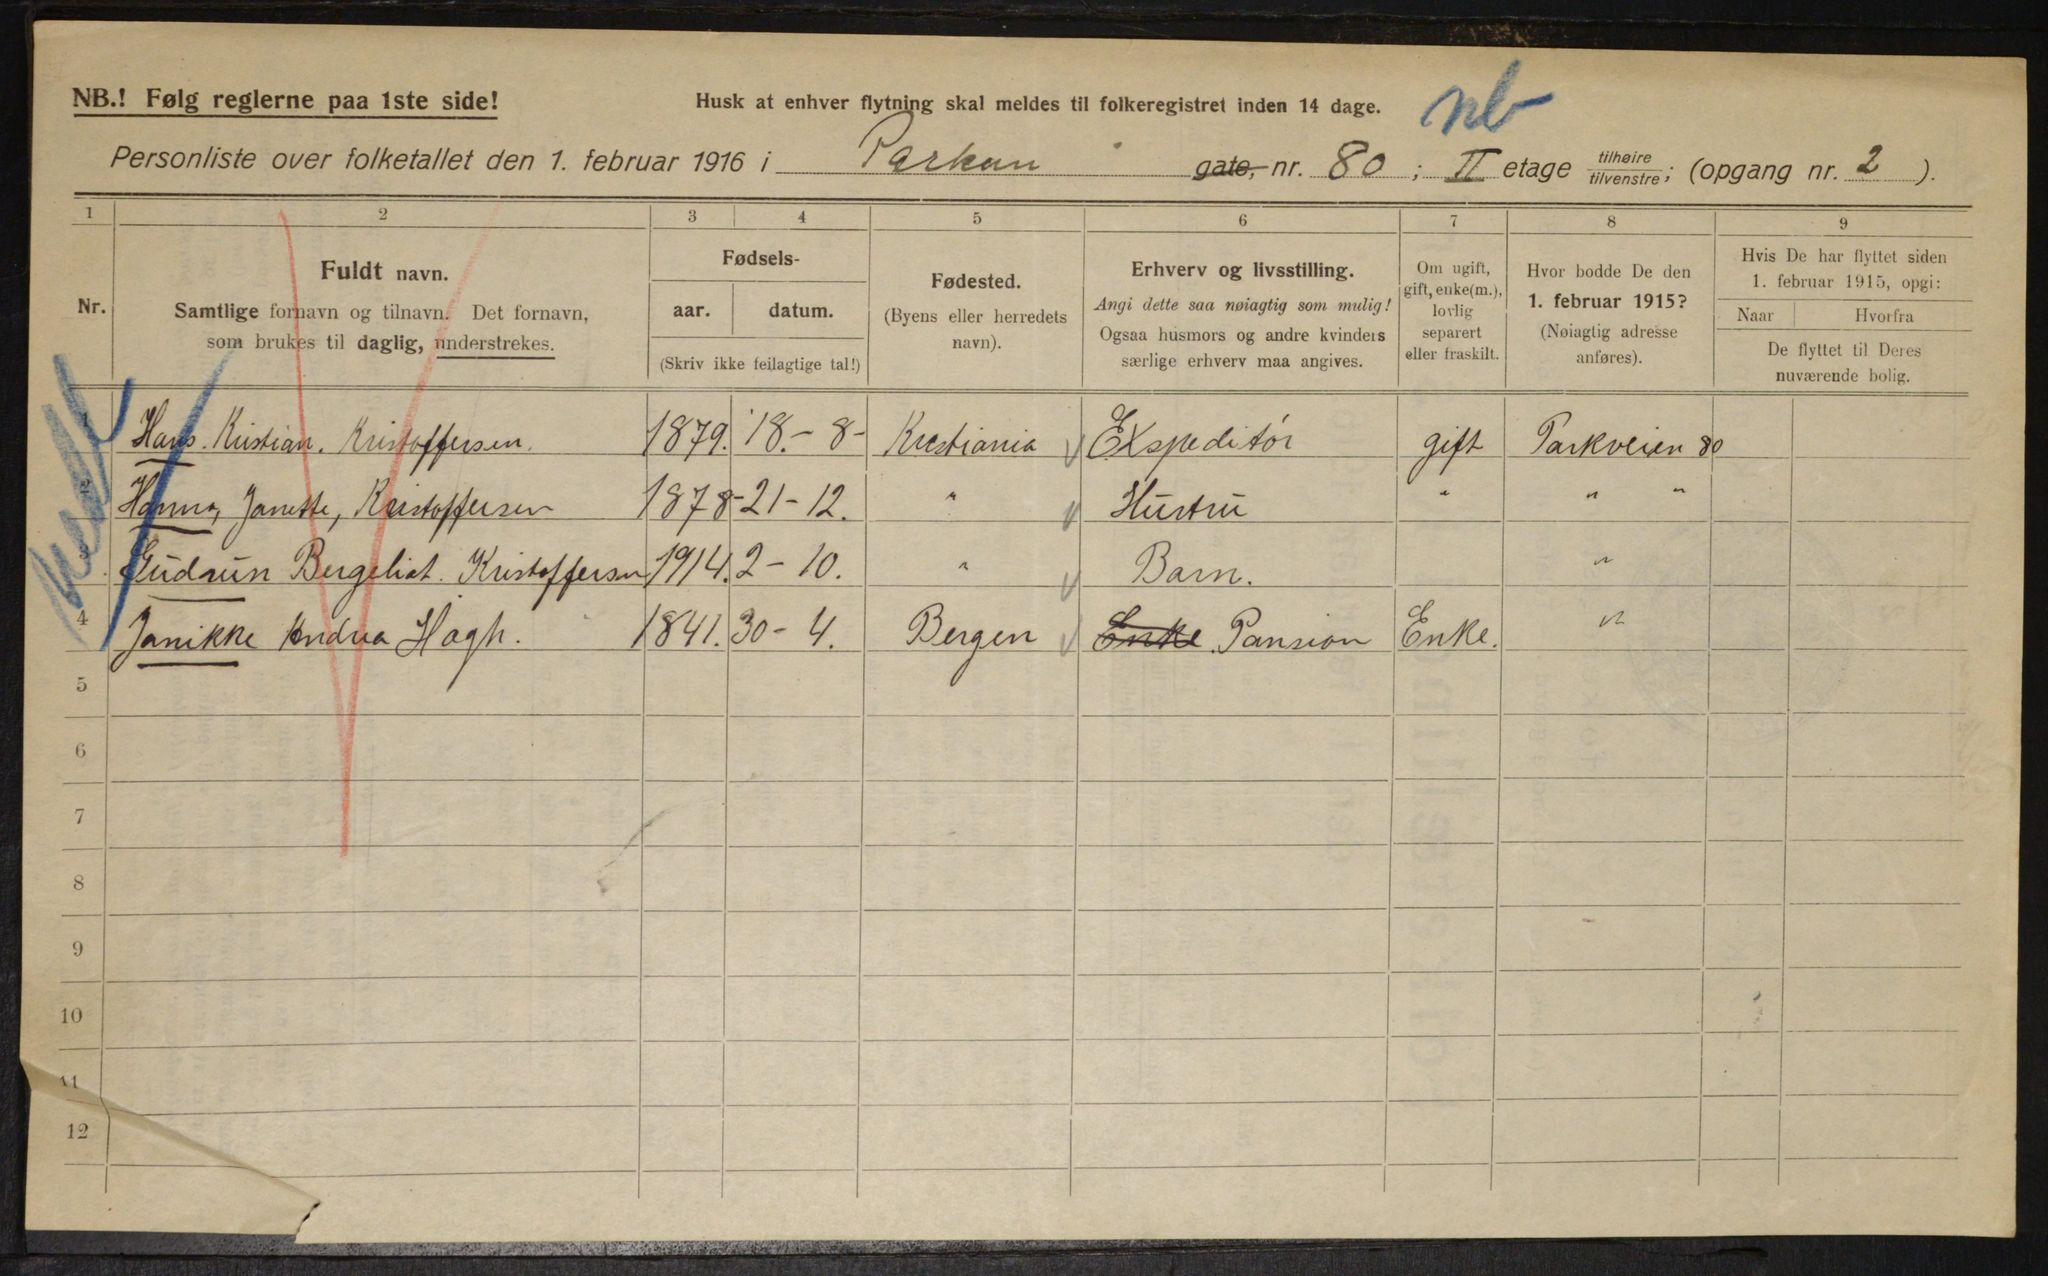 NB.! Følg reglerne paa 1ste side!
Husk at enhver flytning skal meldes til folkeregistret inden 14 dage.
nb
Personliste over folketallet den 1. februar 1916 i Parkvn gate, nr. 80; II etage tilhøire tilvenstre; (opgang nr. 2).
1 2 3 4 5 6 7 8 9
Nr.
Fuldt navn.
Samtlige fornavn og tilnavn. Det fornavn,
som brukes til daglig, understrekes.
Fødsels-
aar. datum.
(Skriv ikke feilagtige tal!)
Fødested.
(Byens eller herredets
navn).
Erhverv og livsstilling.
Angi dette saa nøiagtig som mulig!
Ogsaa husmors og andre kvinders
særlige erhverv maa angives.
Om ugift,
gift, enke(m.),
lovlig
separert
eller fraskilt.
Hvor bodde De den
1. februar 1915?
(Nøiagtig adresse
anføres).
Hvis De har flyttet siden
1. februar 1915, opgi:
Naar Hvorfra
De flyttet til Deres
nuværende bolig.
1 Hans. Kristian. Kristoffersen. 1879. 18.-8- Kristiania Expeditör gift Parkveien 80
2 Hanna, Janette, Kristoffersen 1878-21-12. " Hustru " " "
3 Gudrun Bergeliot. Kristoffersen 1914. 2-10. " Barn. "
4 Janikke Andrea Hogh. 1841. 30-4. Bergen Enke Pansion Enke. "
5
6
7
8
9
10
11
12